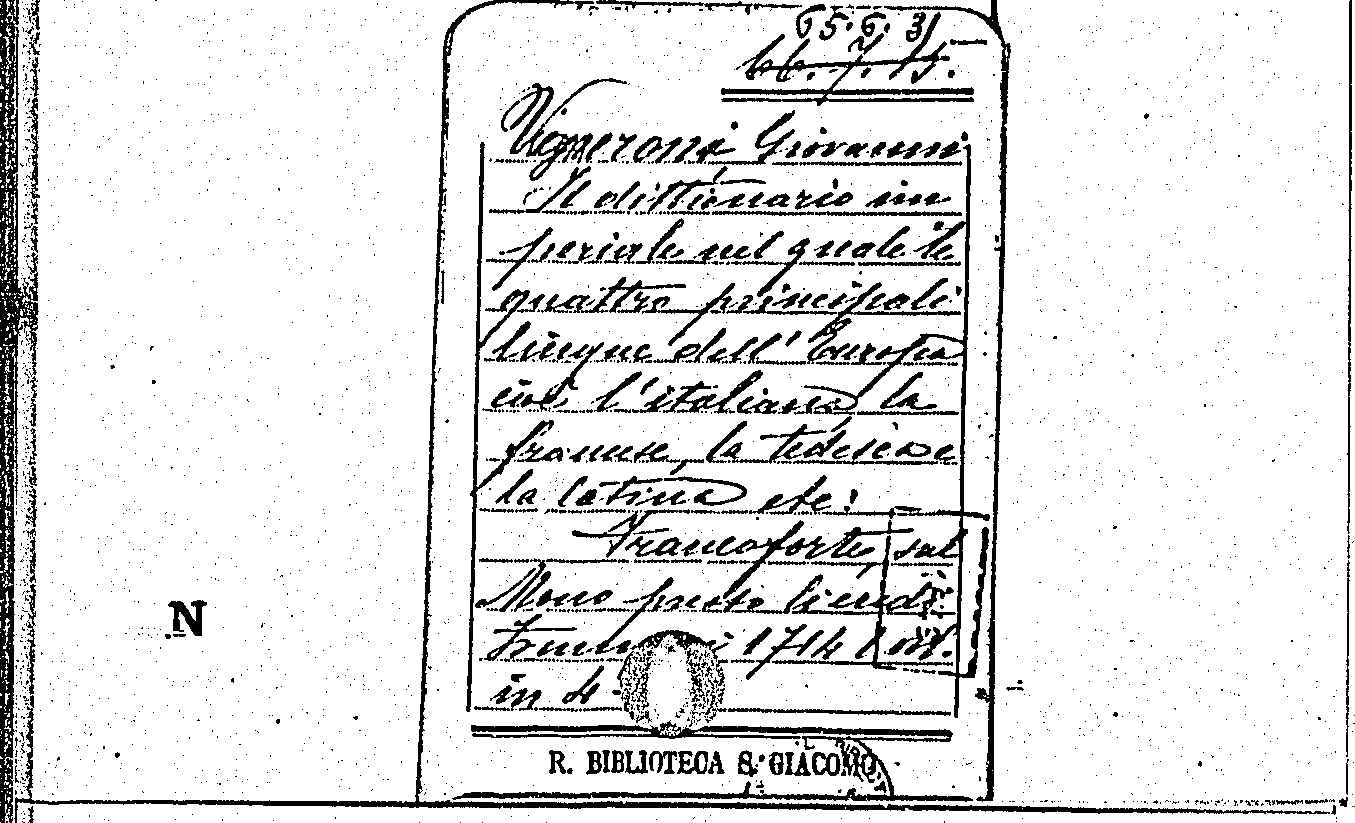 65.6.31
66.7.15.
Vigneroni Giovanni
Il dittionario im
periale nel quale le
quattro principali
lingue dell'Europa
cioè l'italiana, la
francese, la tedesca e
la latina etc:
Francoforte, sul
Meno presso li eredi
1714 1 vol.
in 4-
N
R. BIBLIOTECA S. GIACOMO